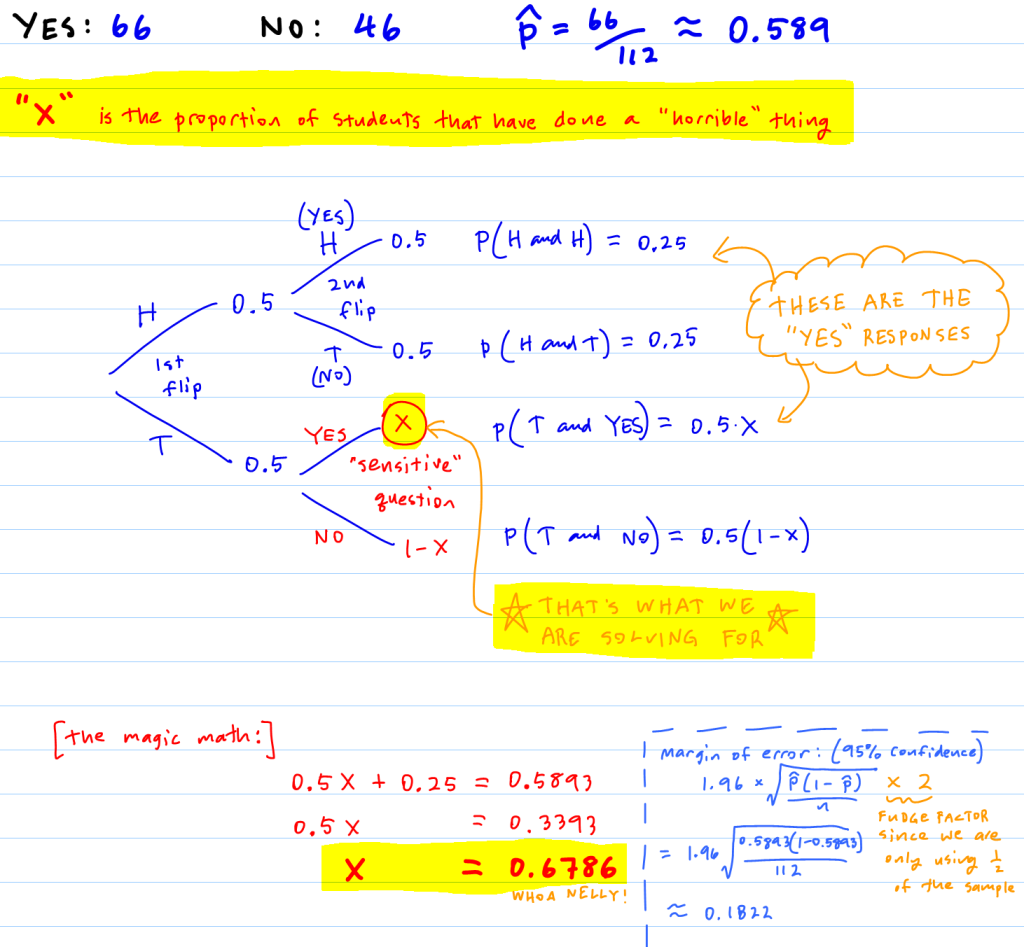 YES: 66 NO: 46 p̂ = 66/112 ≈ 0.589
"X" is the proportion of students that have done a "horrible" thing
(YES)
H 0.5 P(H and H) = 0.25
2nd
flip
H 0.5
THESE ARE THE
"YES" RESPONSES
1st
flip
T 0.5 P(H and T) = 0.25
(NO)
T 0.5
YES X P(T and YES) = 0.5·X
"sensitive"
question
NO 1-X P(T and NO) = 0.5(1-X)
☆ THAT'S WHAT WE ☆
ARE SOLVING FOR
[the magic math:]
0.5X + 0.25 = 0.5893
0.5X = 0.3393
X = 0.6786
WHOA NELLY!
Margin of error: (95% confidence)
1.96 * √(p̂(1-p̂)/n) × 2
FUDGE FACTOR
since we are
only using 1/2
of the sample
= 1.96 √(0.5893(1-0.5893)/112)
≈ 0.1822